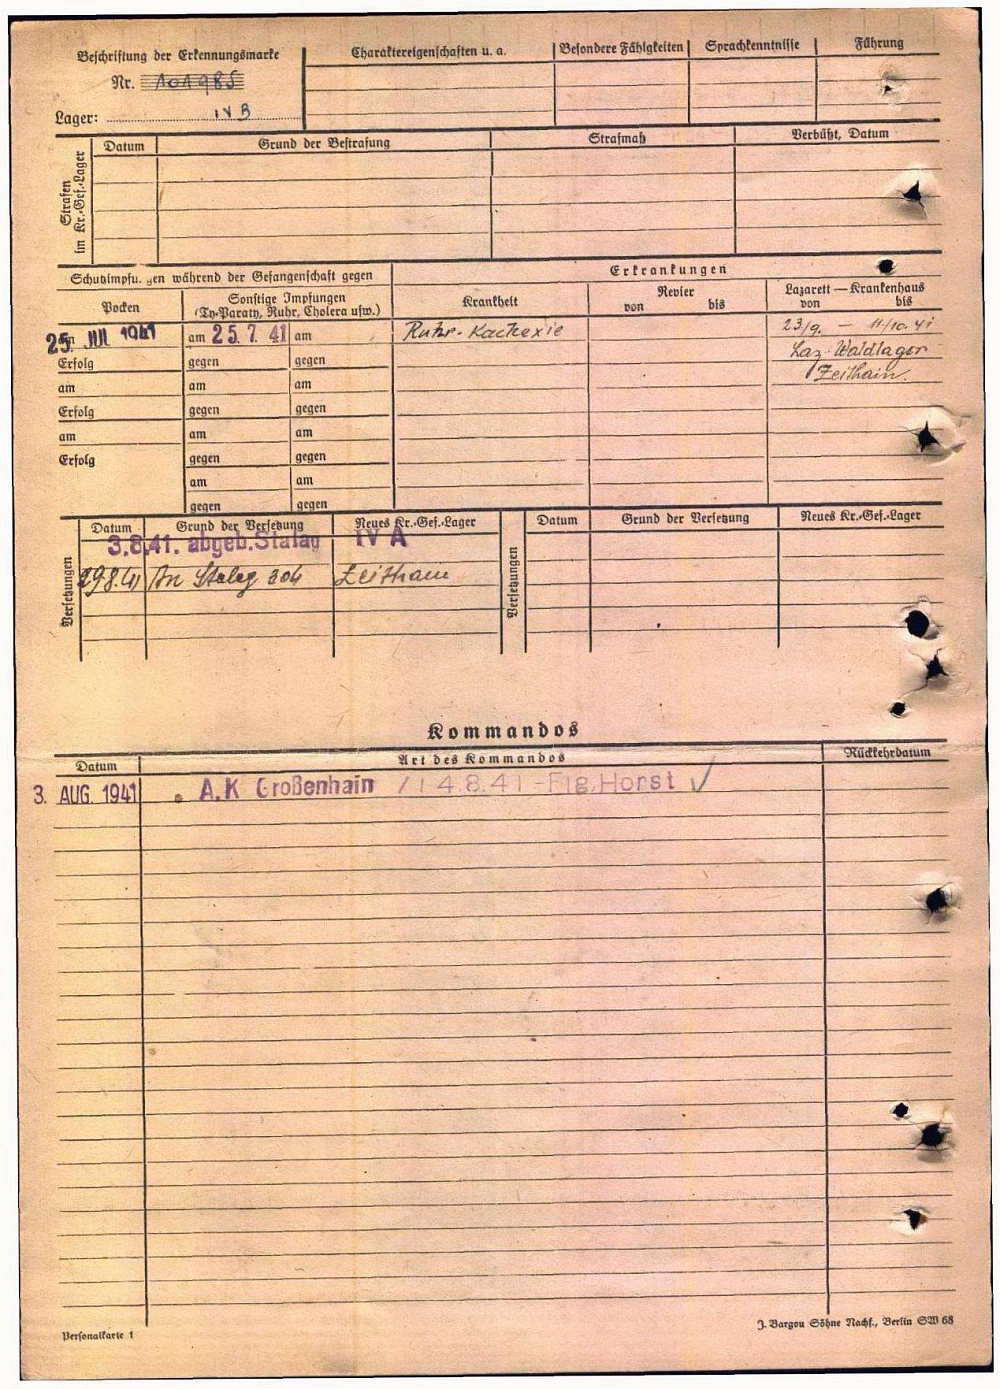 Beschriftung der Erkennungsmarke
Nr. 101985
Lager: IV B
Charaktereigenschaften u. a.
Besondere Fähigkeiten
Sprachkenntnisse
Führung
Strafen im Kr.-Gef.-Lager
Datum
Grund der Bestrafung
Strafmaß
Verbüßt, Datum
Schutzimpfu gen während der Gefangenschaft gegen
Erkrankungen
Pocken
Sonstige Impfungen
(Ty-Paraty, Ruhr, Cholera usw.)
Krankheit
Revier
von bis
Lazarett — Krankenhaus
von bis
25. JUI 1941
am 25. 7. 41 am
Ruhr-Kachexie
23/9. — 11/10. 41
Erfolg gegen gegen
Laz. Waldlager
am am am
Zeithain.
Erfolg gegen gegen
am am am
Erfolg gegen gegen
am am
gegen gegen
Versetzungen
Datum
Grund der Versetzung
Neues Kr.-Gef.-Lager
3.8.41. abgeb. Stalag IV A
29.8.41 An Stalag 304 Zeithain
Versetzungen
Datum
Grund der Versetzung
Neues Kr.-Gef.-Lager
Kommandos
Datum
Art des Kommandos
Rückkehrdatum
3. AUG. 1941 A.K Großenhain / 1 4.8.41 - Flg. Horst ✓
Personalkarte 1
J. Bargou Söhne Nachf., Berlin SW 68